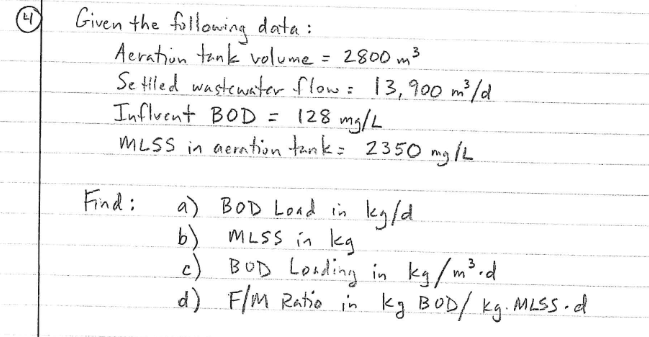 4 Given the following data :
Aeration tank volume = 2800 m³
Settled wastewater flow = 13,900 m³/d
Influent BOD = 128 mg/L
MLSS in aeration tank = 2350 mg/L
Find : a) BOD Load in kg/d
b) MLSS in kg
c) BOD Loading in kg/m³·d
d) F/M Ratio in kg BOD/kg·MLSS·d